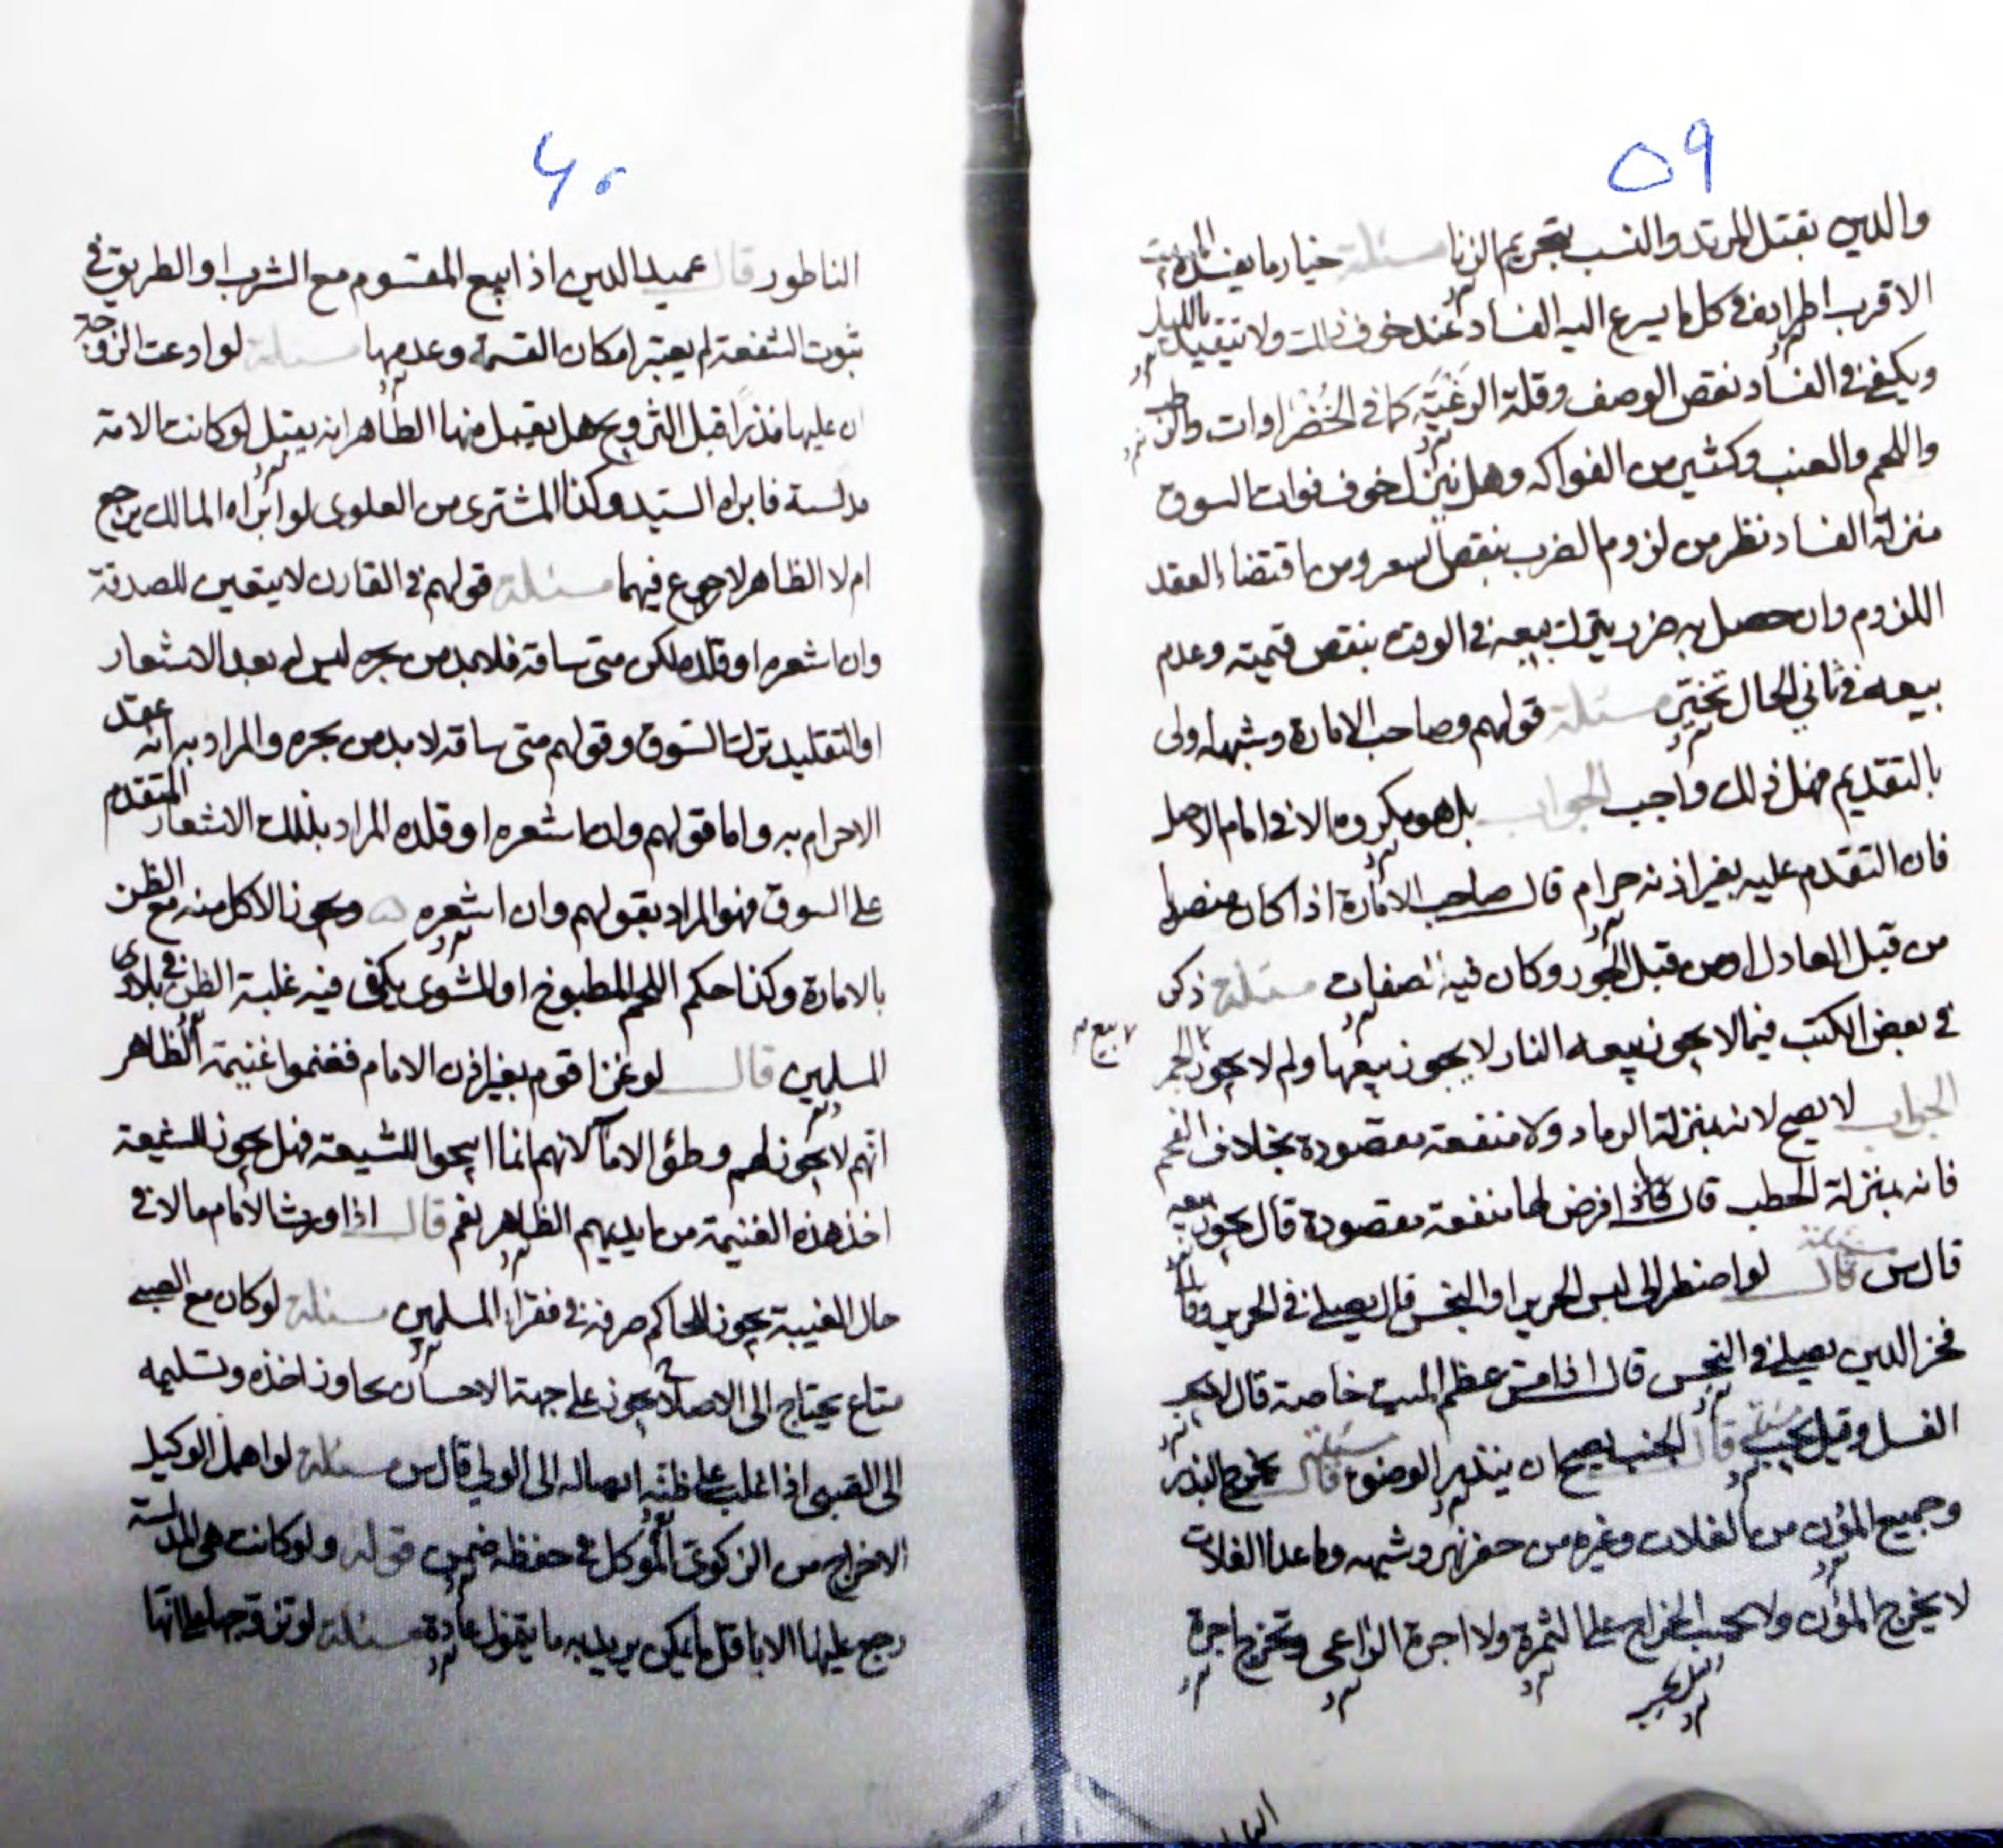 ٥٩
والدين بقتل المرتد والنسب بتحريم الزنا مسئلة خيار ما يفسده المبيت
الاقرب اطراده في كل ما يسرع اليه الفساد عند خوف ذلك ولا يتقيد بالليل
ويكفي في الفساد نقص الوصف وقلة الرغبة كما في الخضراوات والرطب
واللحم والعنب وكثير من الفواكه وهل ينزل خوف فوات السوق
منزلة الفساد نظر من لزوم الضرر بنقص السعر ومن اقتضاء العقد
اللزوم وان حصل به ضرر يترك بيعه في الوقت بنقص قيمته وعدم
بيعه في ثاني الحال تخير مسئلة قولهم وصاحب الامارة وشبهه اولى
بالتقديم فهل ذلك واجب الجواب بل هو مكروه الا في امام الاصل
فان التقدم عليه بغير اذنه حرام قال صاحب الامارة اذا كان منصوبا
من قبل العادل او من قبل الجور وكان فيه صفات مسئلة ذكر
في بعض الكتب فيما لا يجوز بيعه النار لا يجوز بيعها ولم لا يجوز بيع الجمر
الجواب لا يصح لانه بمنزلة الرماد ولا منفعة مقصودة بخلاف الفحم
فانه بمنزلة الحطب قال فاذا فرض لها منفعة مقصودة قال يجوز بيعه
قال س مسئلة قال لو اضطر الى لبس الحرير او النجس قال يصلي في الحرير وقال
فخر الدين يصلي في النجس قال اذا مس عظم الميت خاصة قال لا يجب
الغسل وقيل يجب مسئلة قال الجنب يصح ان ينذر الوضوء مسئلة قال يخرج البذر
وجميع المؤن من الغلات وغيره من حفر نهر وشبهه وما عدا الغلات
لا يخرج المؤن ولا يحسب الخراج على الثمرة ولا اجرة الزراعي وتخرج اجرة
٦٠
الناطور قال عميد الدين اذا بيع المقسوم مع الشرب او الطريق في
ثبوت الشفعة لم يعتبر امكان القسمة وعدمها مسئلة لو ادعت الزوجة
ان عليها نذرا قبل التزويج هل يقبل منها الظاهر انه يقبل لو كانت الامة
مدلسة فابراه السيد وكذا المشترى من العلوى لو ابراه المالك يرجع
ام لا الظاهر لا رجوع فيهما مسئلة قولهم في القارن لا يتعين للصدقة
وان اشعره او قلده لكن متى ساقه فلا بد من نحره ليس له بعد الاشعار
او التقليد ترك السوق وقولهم متى ساقه لا بد من نحره والمراد به انه عقد
الاحرام به واما قولهم وان اشعره او قلده المراد بذلك الاشعار المتقدم
على السوق فهو المراد بقولهم وان اشعره ويجوز الاكل منه مع الظن
بالامارة وكذا حكم اللحم المطبوخ او المشوى يكفى فيه غلبة الظن في بلاد
المسلمين قال لو غزا قوم بغير اذن الامام فغنموا غنيمة الظاهر
انهم لا يجوز لهم وطؤ الاماء لانهم انما ابيحوا للشيعة فهل يجوز للشيعة
اخذ هذه الغنيمة من ايديهم الظاهر نعم قال اذا ورث الامام مالا في
حال الغيبة يجوز للحاكم صرفه في فقراء المسلمين مسئلة لو كان مع الصبي
متاع يحتاج الى الاصلاح يجوز على جهة الاحسان اخذه وتسليمه
الى الصبى اذا غلب على ظنه ايصاله الى الولي قال س مسئلة لو اهمل الوكيل
الاخراج من الزكوة الموكل في حفظه ضمن قوله ولو كانت هى المدلسة
رجع عليها الا باقل ما يمكن يريد به ما يتمول عادة مسئلة لو تزوجها على انها